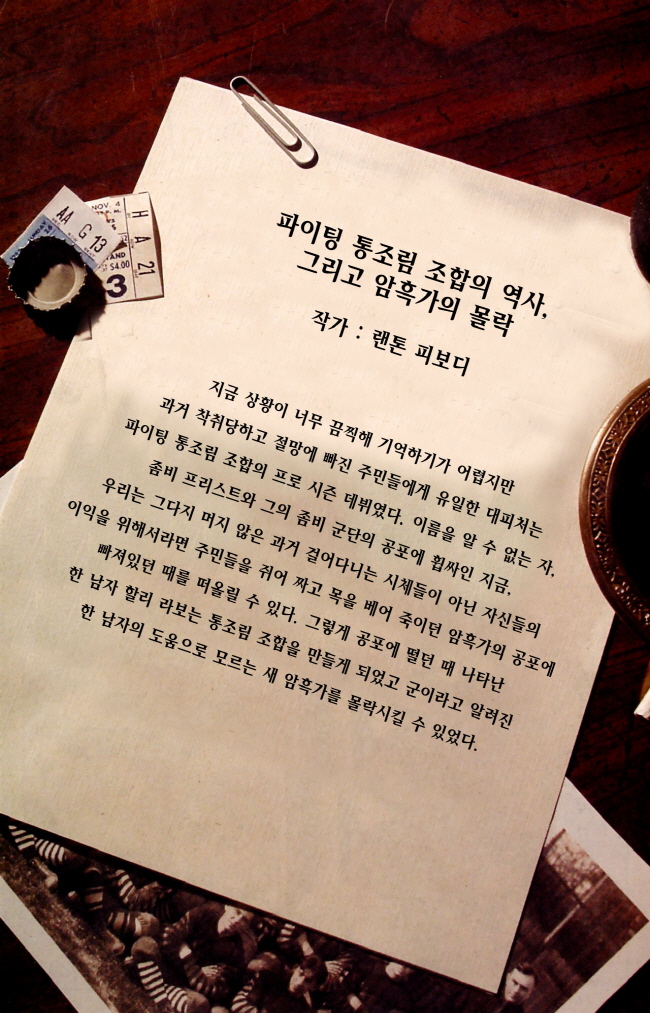 NOV. 4
AA G 13
H A 21
AND
$4.00
3
파이팅 통조림 조합의 역사,
그리고 암흑가의 몰락
작가 : 랜톤 피보디
지금 상황이 너무 끔찍해 기억하기가 어렵지만
과거 착취당하고 절망에 빠진 주민들에게 유일한 대피처는
파이팅 통조림 조합의 프로 시즌 데뷔였다. 이름을 알 수 없는 자,
좀비 프리스트와 그의 좀비 군단의 공포에 휩싸인 지금,
우리는 그다지 머지 않은 과거 걸어다니는 시체들이 아닌 자신들의
이익을 위해서라면 주민들을 쥐어 짜고 목을 베어 죽이던 암흑가의 공포에
빠져있던 때를 떠올릴 수 있다. 그렇게 공포에 떨던 때 나타난
한 남자 할리 라보는 통조림 조합을 만들게 되었고 군이라고 알려진
한 남자의 도움으로 모르는 새 암흑가를 몰락시킬 수 있었다.